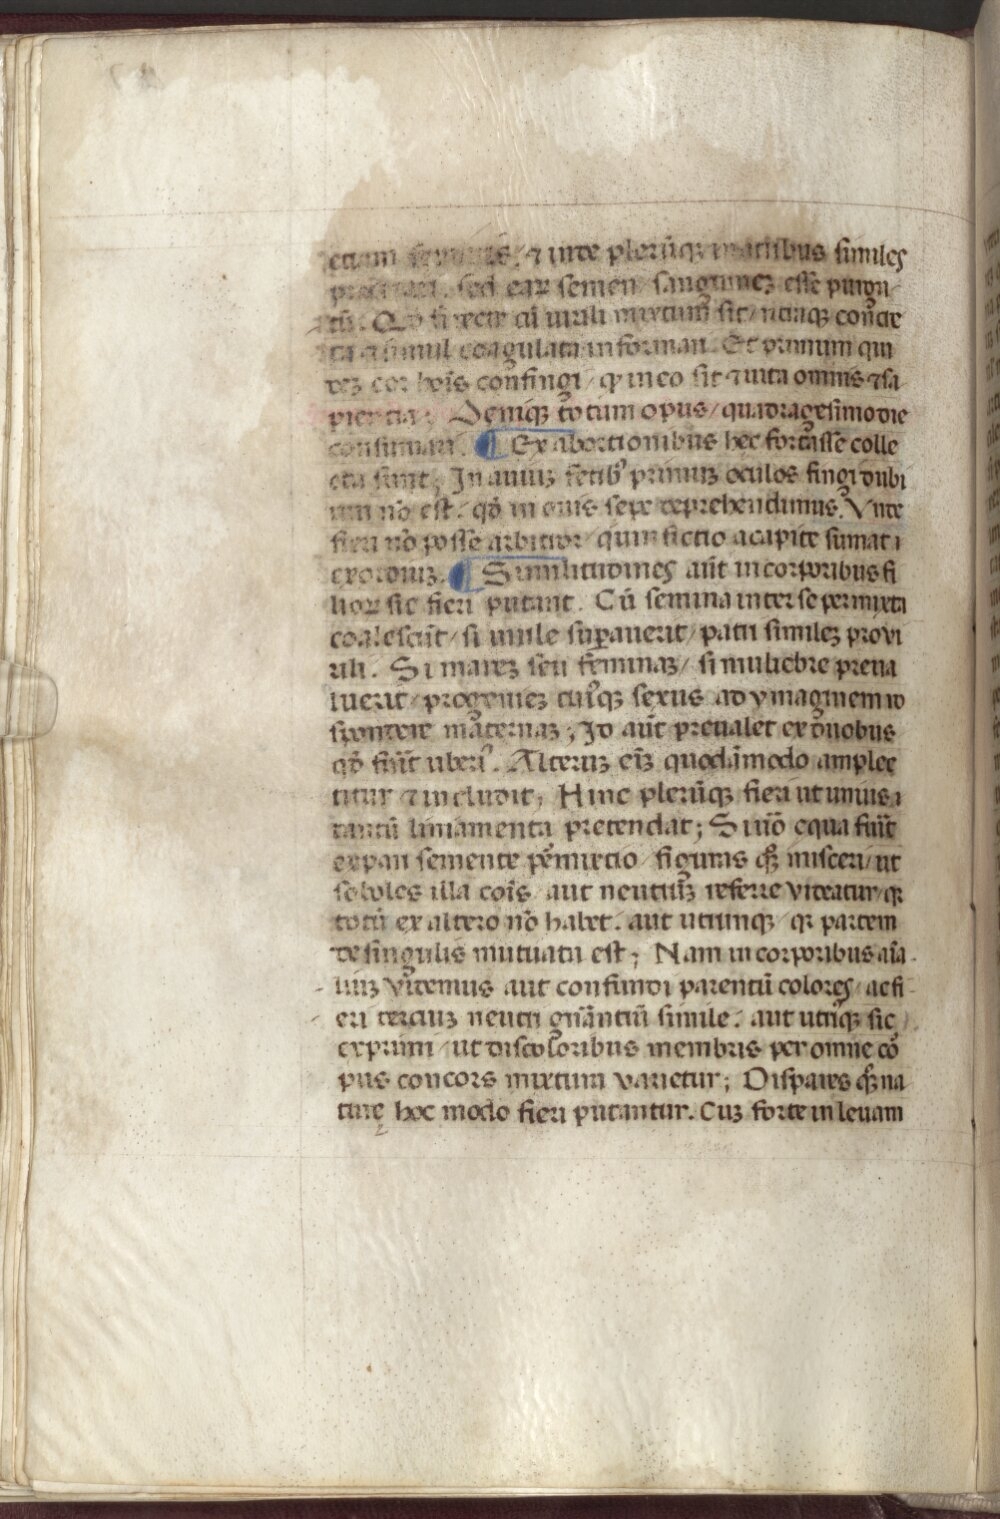 etiam seminis. ⁊ inde plerūqꝫ matribus similes
procreari. sed eaꝝ semen sanguineꝫ esse purga
tū. Qḋ si recte cū virili mixtum sit / utraqꝫ concre
ta ⁊ simul coagulata informari. Et primum qui
deꝫ cor hoīs confingi / ꝙ in eo sit ⁊ uita omnis ⁊ sa
pientia; Deniqꝫ totum opus / quadragesimo die
consumari. ¶ Ex abortionibus hec fortasse colle
cta sunt; In auiuꝫ fetibꝰ primuꝫ oculos fingi dubi
um nō est. qḋ in ouis sepe deprehendimus. Vnde
fieri nō posse arbitror / quin fictio a capite sumat
exordiuꝫ. ¶ Similitudines aūt in corporibus fi
lioꝝ sic fieri putant. Cū semina inter se permixta
coalescūt / si uirile suꝑauerit / patri similez provi
rili. Si mareꝫ seu feminaꝫ / si muliebre preua
luerit / progenieꝫ cuiꝰqꝫ sexus ad ymaginem re
spondere maternaꝫ; Id aūt preualet ex duobus
qḋ fūit uberiꝰ. Alteruꝫ eīꝫ quodāmodo amplec
titur ⁊ includit; Hinc plerūqꝫ fieri ut unius
tantū liniamenta pretendat; Si uō equa fuīt
ex pari semente ꝑmixtio / figuras qꝫ misceri / ut
soboles illa coīs aut neutruꝫ referre videatur / qꝛ
totū ex altero nō habet. aut utrunqꝫ / qꝛ partem
de singulis mutuata est; Nam in corporibus aīa
liuꝫ videmus aut confundi parentū colores / ac fi
eri terciuꝫ neutri gnāntiū simile. aut utriqꝫ sic
exprimi / ut discoloribus membris per omne cor
pus concors mixtura varietur; Dispares qꝫ na
turę hoc modo fieri putantur. Cuꝫ forte in leuam